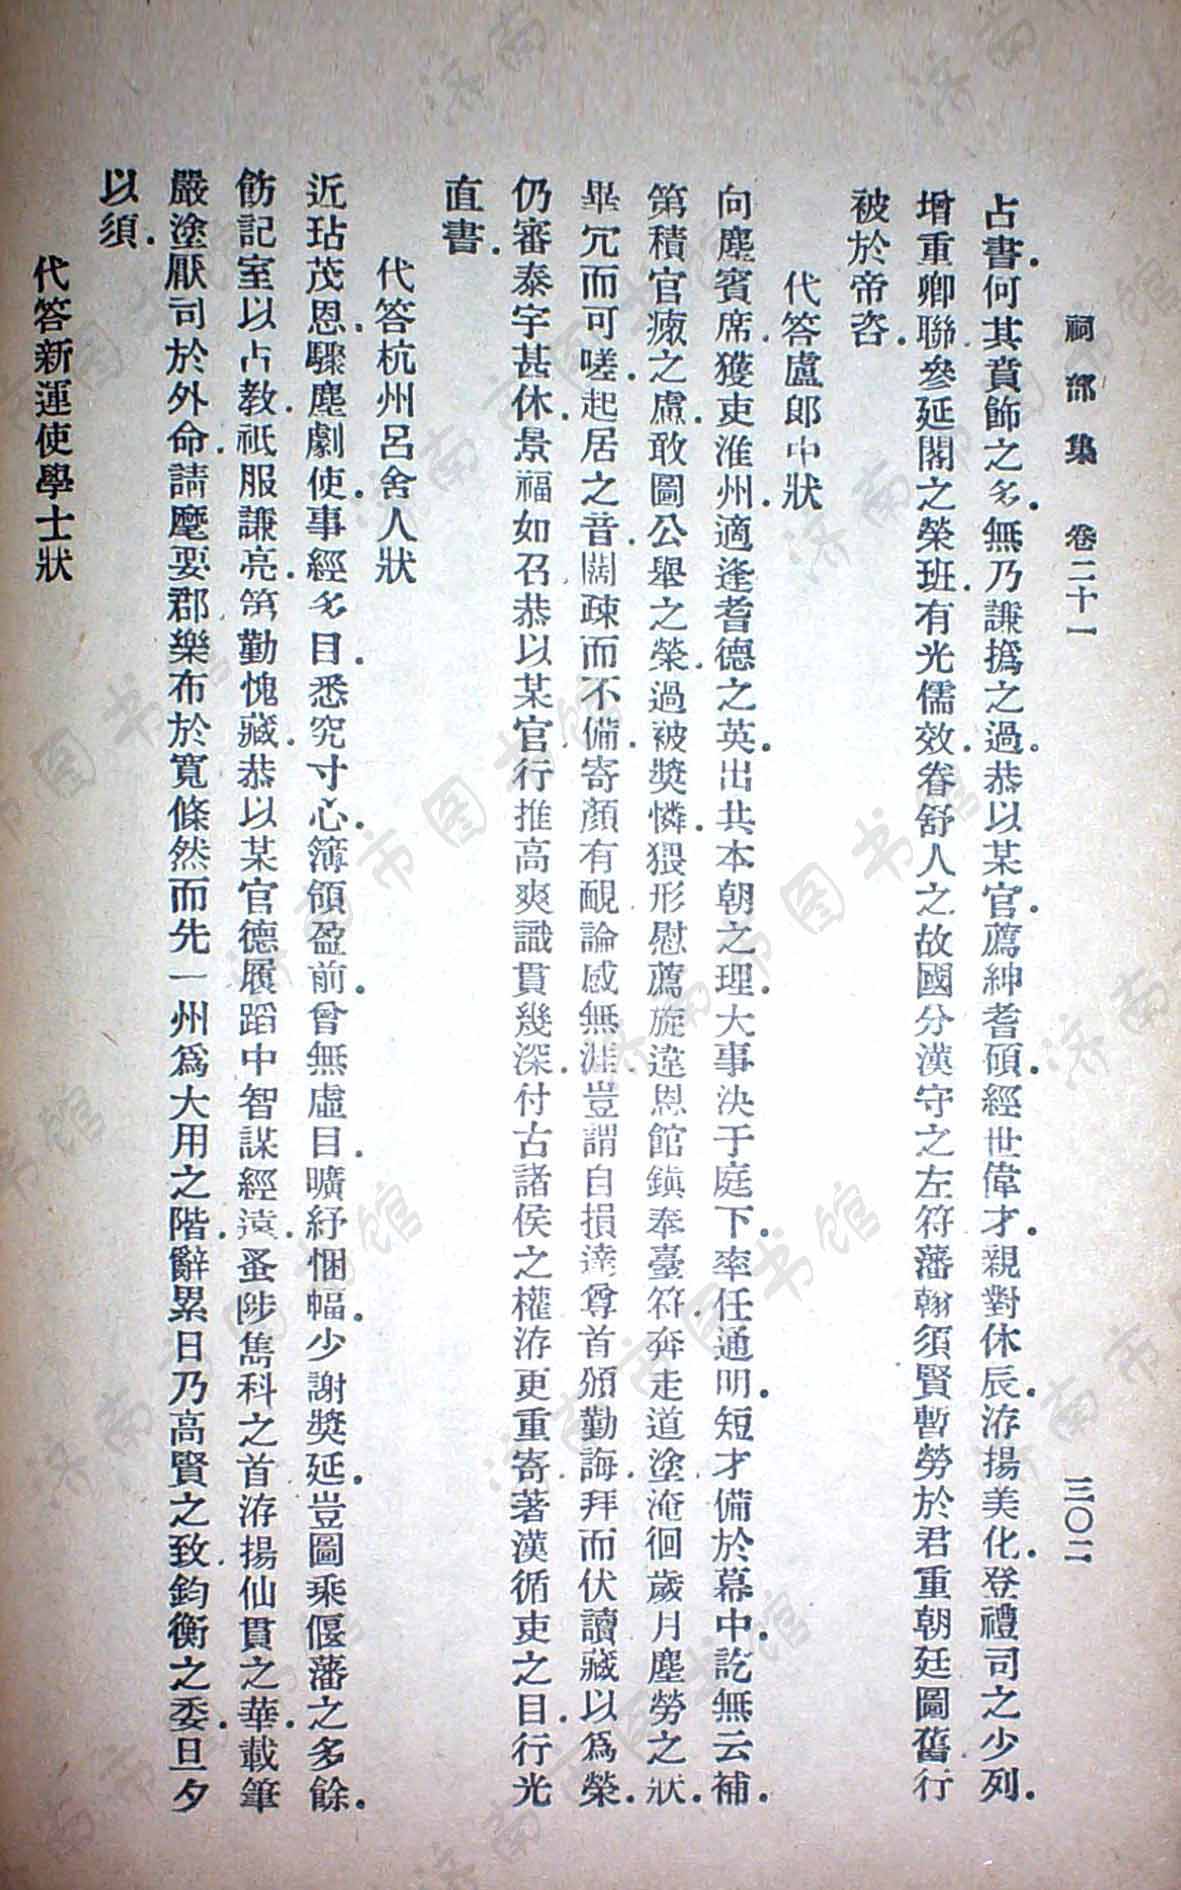 祠部集 卷二十一 三〇二
占書．何其賁飾之多．無乃謙撝之過．恭以某官．薦紳耆碩．經世偉才．親對休辰．洊揚美化．登禮司之少列．
增重卿聯．參延閣之榮班．有光儒效．眷舒人之故國．分漢守之左符．藩翰須賢．暫勞於君重．朝廷圖舊．行
被於帝咨．
代答盧郎中狀
向塵賓席．獲吏淮州．適逢耆德之英．出共本朝之理．大事決于庭下．率任通明．短才備於幕中．訖無云補．
第積官瘝之慮．敢圖公舉之榮．過被獎憐．猥形慰薦．旋違恩館．鎮奉臺符．奔走道塗．淹徊歲月．塵勞之狀．
畢冗而可嗟．起居之音．闊疎而不備．寄顏有靦．論感無涯．豈謂自損達尊．首頒勤誨．拜而伏讀．藏以爲榮．
仍審泰宇甚休．景福如召．恭以某官．行推高爽．識貫幾深．付古諸侯之權．洊更重寄．著漢循吏之目．行光
直書．
代答杭州呂舍人狀
近玷茂恩．驟塵劇使．事經多目．悉究寸心．簿領盈前．曾無虛目．曠紓悃幅．少謝獎延．豈圖乘偃藩之多餘．
飭記室以占教．祇服謙亮．第勤愧藏．恭以某官德履蹈中．智謀經遠．蚤陟雋科之首．洊揚仙貫之華．載筆
嚴塗．厭司於外命．請麾要郡．樂布於寬條．然而先一州爲大用之階．辭累日乃高賢之致．鈞衡之委．旦夕
以須．
代答新運使學士狀